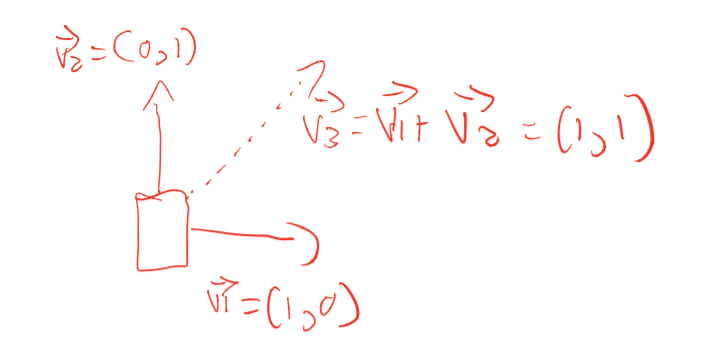 v⃗2=(0,1)
v⃗3=v⃗1+v⃗2=(1,1)
v⃗1=(1,0)